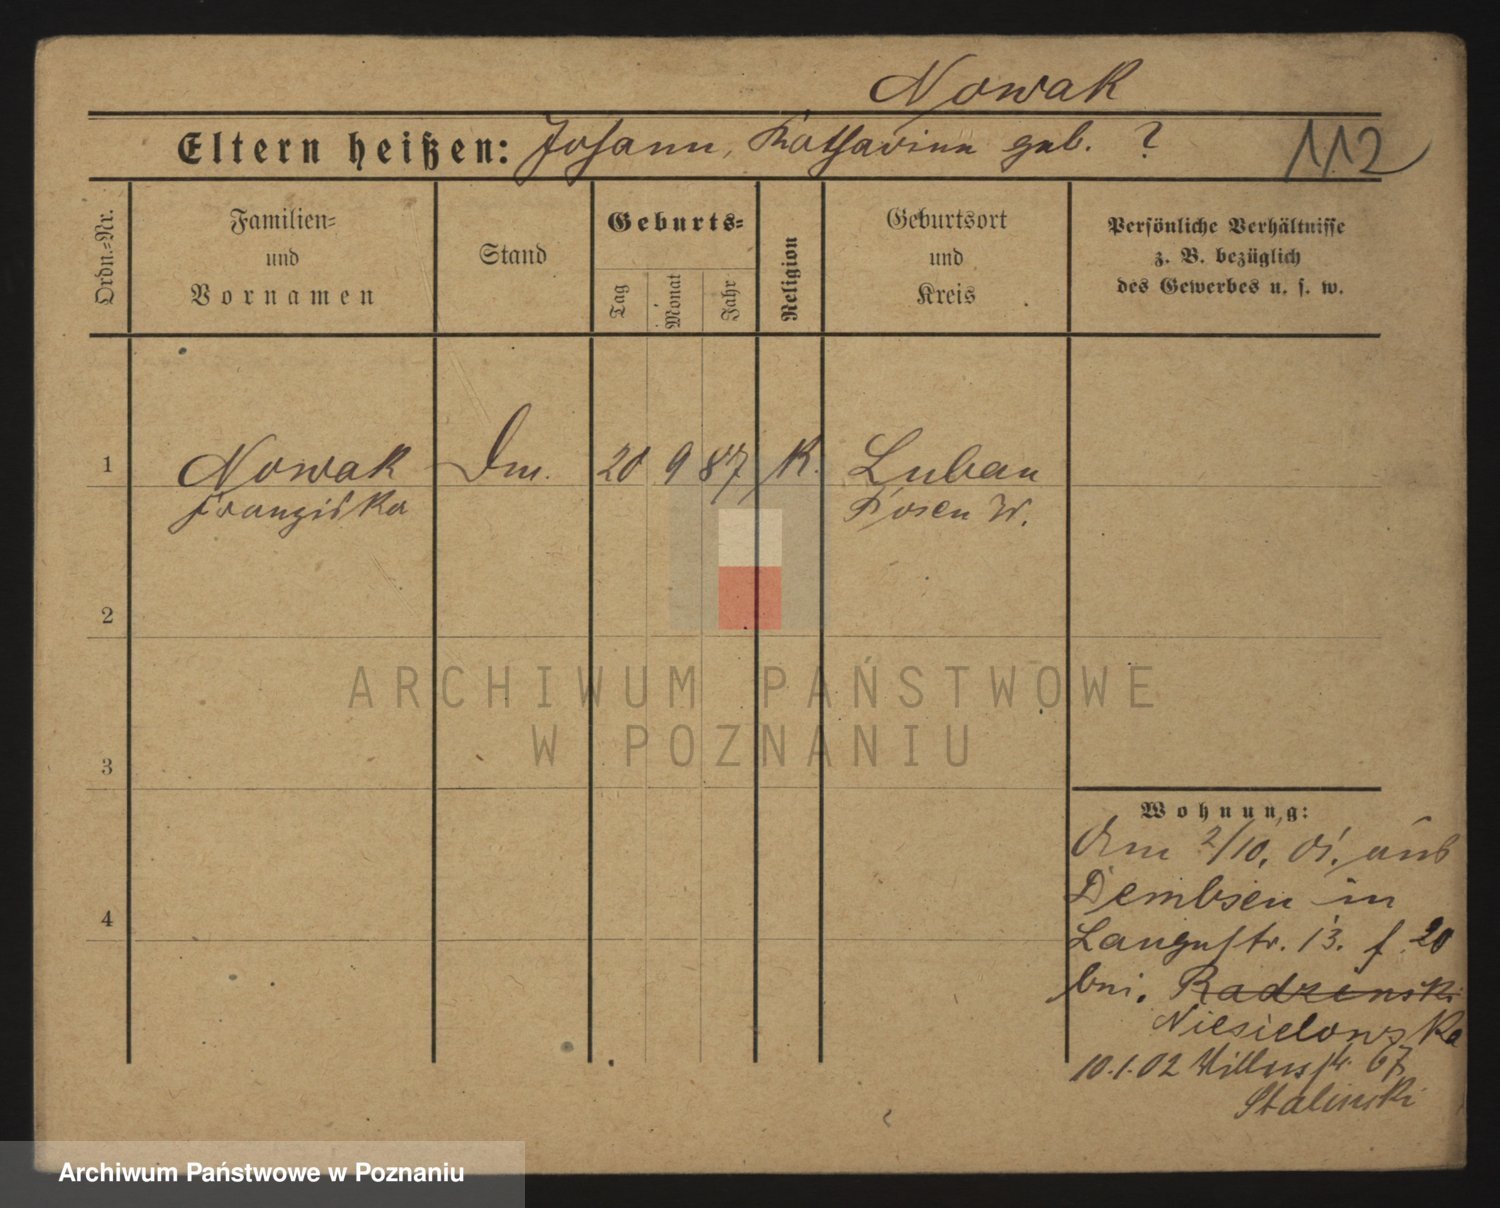 Nowak
Eltern heißen: Johann, Katharina geb. ?
112
Ordn.=Nr.
Familien=
und
Vornamen
Stand
Geburts=
Tag
Monat
Jahr
Religion
Geburtsort
und
Kreis
Persönliche Verhältnisse
z. B. bezüglich
des Gewerbes u. s. w.
1
Nowak
Franziska
20 9 87 K.
Luban
Posen W.
2
ARCHIWUM PAŃSTWOWE
W POZNANIU
3
Wohnung:
2/10. 01. aus
Dembsen in
Langestr. 13. f 20
bei. Radzinski
Niesielowska
10.1.02 67
Stalinski
4
Archiwum Państwowe w Poznaniu